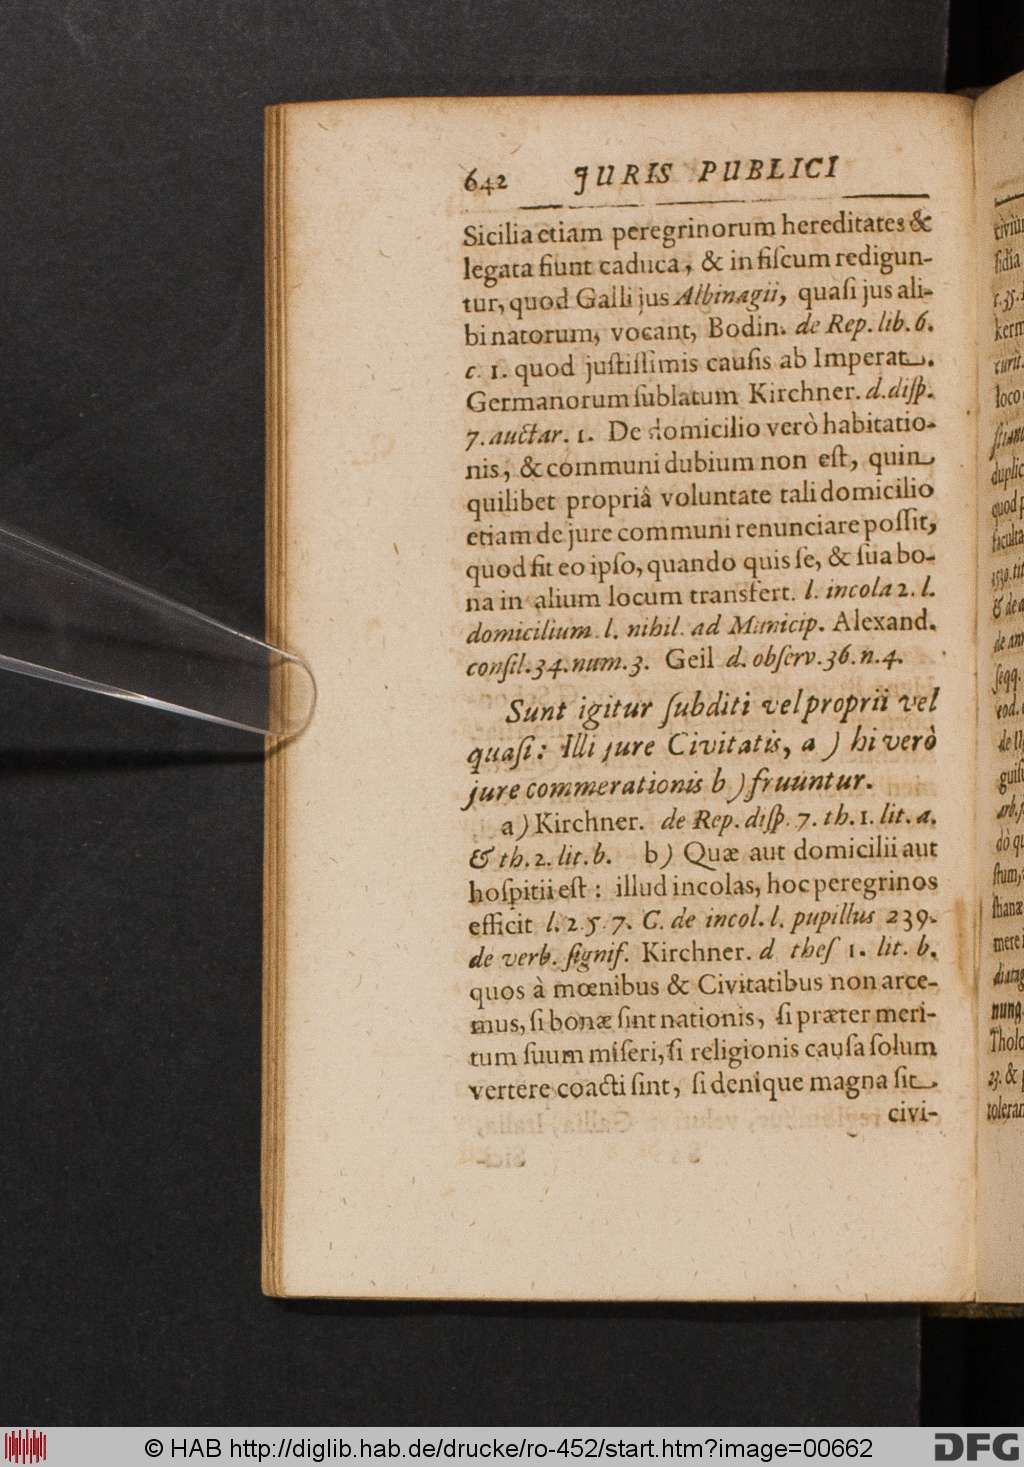 642 JURIS PUBLICI
Sicilia etiam peregrinorum hereditates &
legata fiunt caduca, & in fiſcum redigun-
tur, quod Galli jus Albinagii, quaſi jus ali-
bi natorum, vocant, Bodin. de Rep. lib. 6.
c. 1. quod juſtiſſimis cauſis ab Imperat.
Germanorum ſublatum Kirchner. d. diſp.
7. auctar. 1. De domicilio verò habitatio-
nis, & communi dubium non eſt, quin
quilibet propriâ voluntate tali domicilio
etiam de jure communi renunciare poſſit,
quod fit eo ipſo, quando quis ſe, & ſua bo-
na in alium locum transfert. l. incola 2. l.
domicilium. l. nihil. ad Municip. Alexand.
conſil. 34. num. 3. Geil d. obſerv. 36. n. 4.
Sunt igitur ſubditi vel proprii vel
quaſi: Illi jure Civitatis, a ) hi verò
jure commerationis b ) fruuntur.
a ) Kirchner. de Rep. diſp. 7. th. 1. lit. a.
& th. 2. lit. b. b ) Quæ aut domicilii aut
hoſpitii eſt: illud incolas, hoc peregrinos
efficit l. 2. 5. 7. C. de incol. l. pupillus 239.
de verb. ſignif. Kirchner. d theſ 1. lit. b.
quos à mœnibus & Civitatibus non arce-
mus, ſi bonæ ſint nationis, ſi præter meri-
tum ſuum miſeri, ſi religionis cauſa ſolum
vertere coacti ſint, ſi denique magna ſit
civi-
© HAB http://diglib.hab.de/drucke/ro-452/start.htm?image=00662
DFG